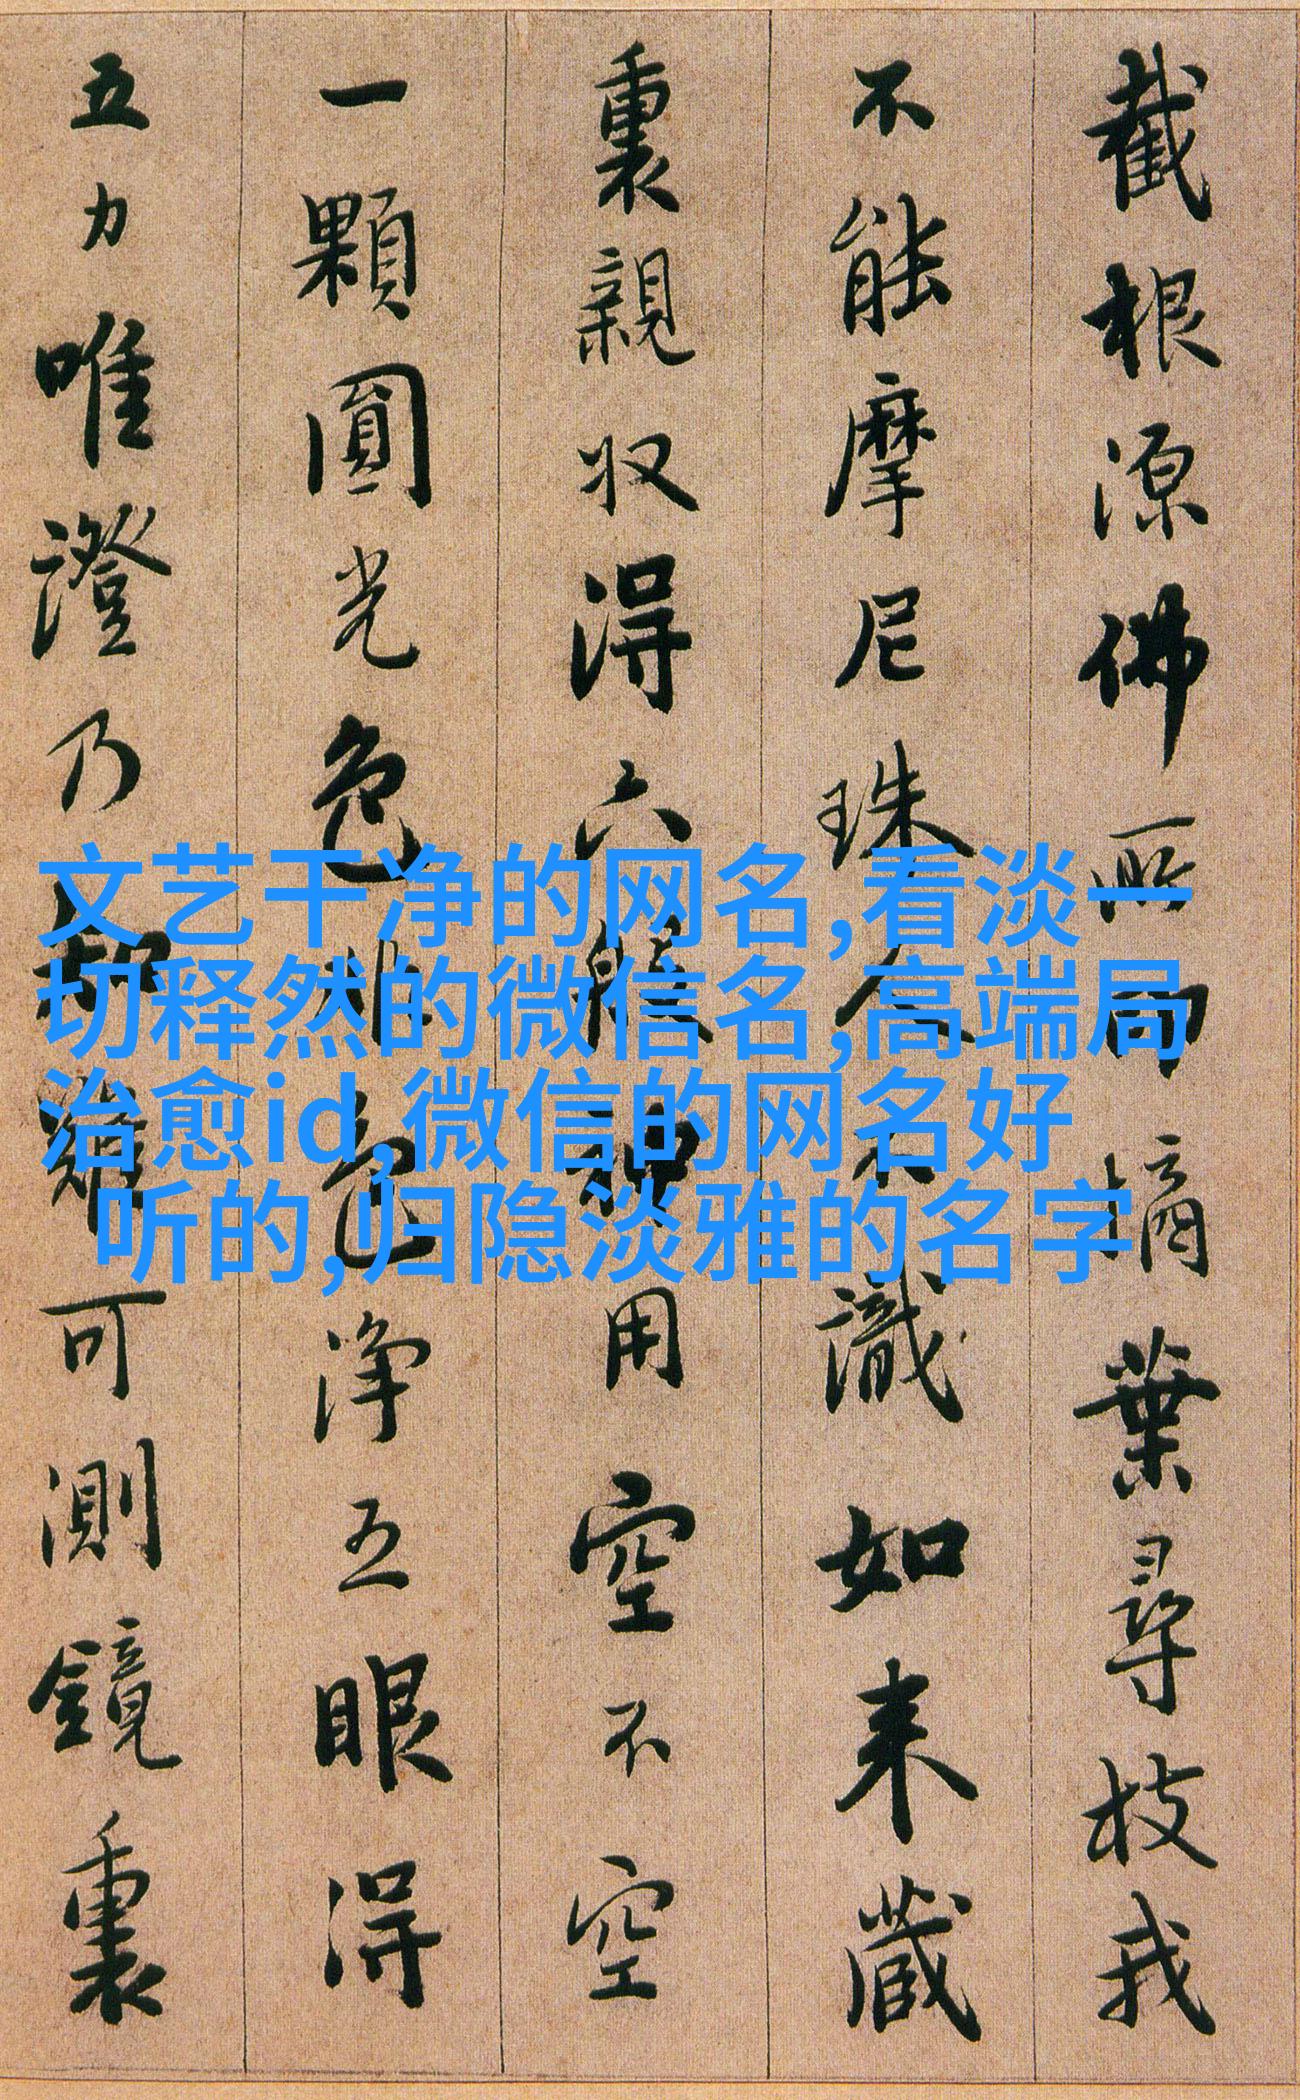 截根源佛所印摘葉尋枝我
不能摩尼珠人不識如来藏
裏親収得六般神用空不空
一顆圓光色非色淨五眼得
五力唯證乃知難可測鏡裏
文艺干净的网名,看淡一
切释然的微信名,高端局
治愈id,微信的网名好
听的,归隐淡雅的名字